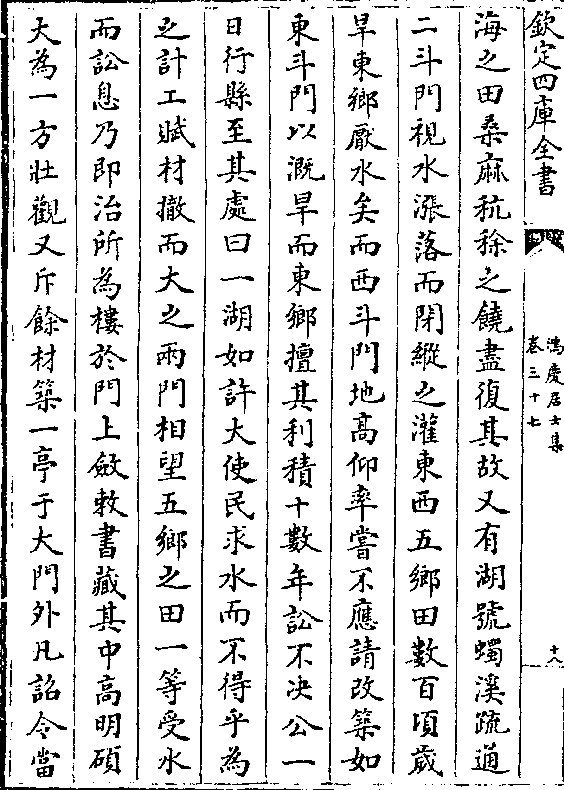 欽定四庫全書
鴻慶居士集
卷三十七
十八
海之田桑麻秔稌之饒盡復其故又有湖號蠋溪䟽通
二斗門視水漲落而閉縱之灌東西五鄉田數百頃歲
旱東鄉厭水矣而西斗門地高仰率嘗不應請改築如
東斗門以溉旱而東鄉擅其利積十數年訟不决公一
日行縣至其處曰一湖如許大使民求水而不得乎為
之計工賦材撤而大之兩門相望五鄉之田一等受水
而訟息乃即治所為樓於門上斂敕書藏其中高明碩
大為一方壯觀又斥餘材築一亭于大門外凡詔令當